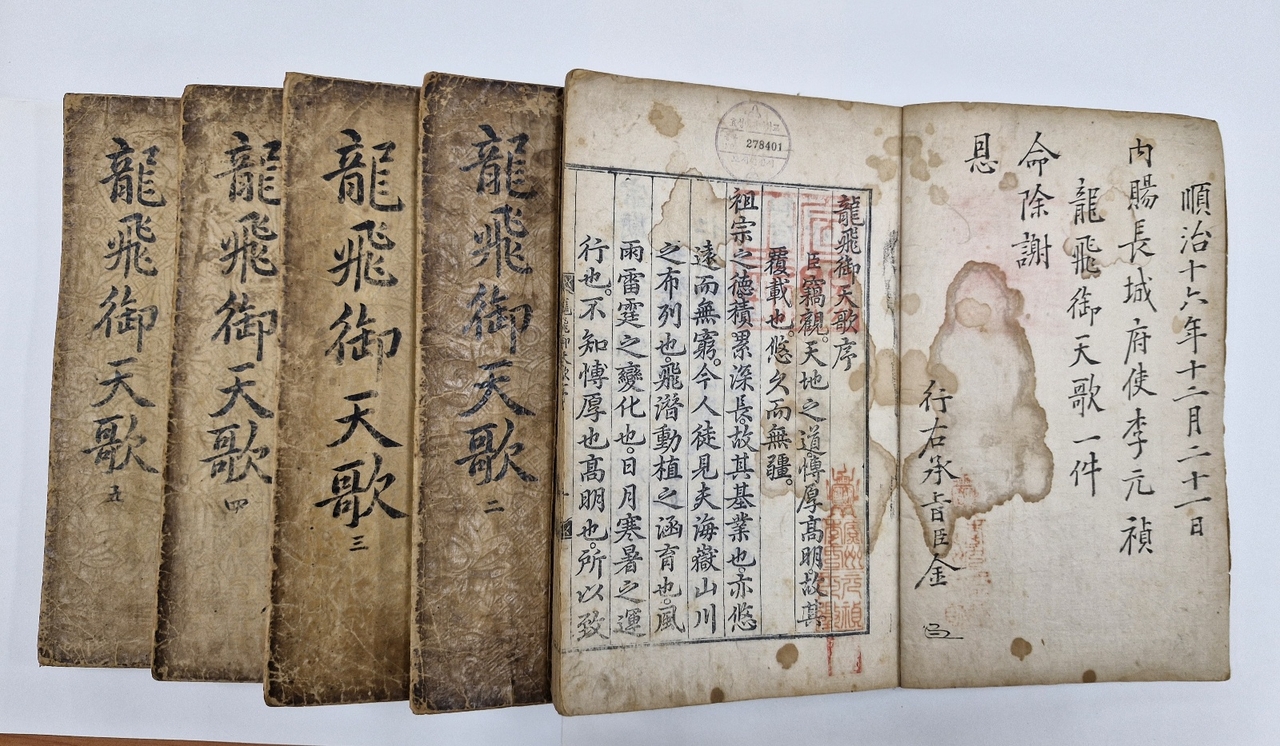 順治十六年十二月二十一日
內賜長城府使李元禎
龍飛御天歌一件
命除謝
恩
行右承旨臣金
278401
龍飛御天歌序
臣竊觀。天地之道。博厚高明。故其
覆載也。悠久而無疆。
祖宗之德。積累深長。故其基業也。亦悠
遠而無窮。今人徒見夫海嶽山川
之布列也。飛潛動植之涵育也。風
雨雷霆之變化也。日月寒暑之運
行也。不知博厚也高明也。所以致
龍飛御天歌 二
龍飛御天歌 三
龍飛御天歌 四
龍飛御天歌 五